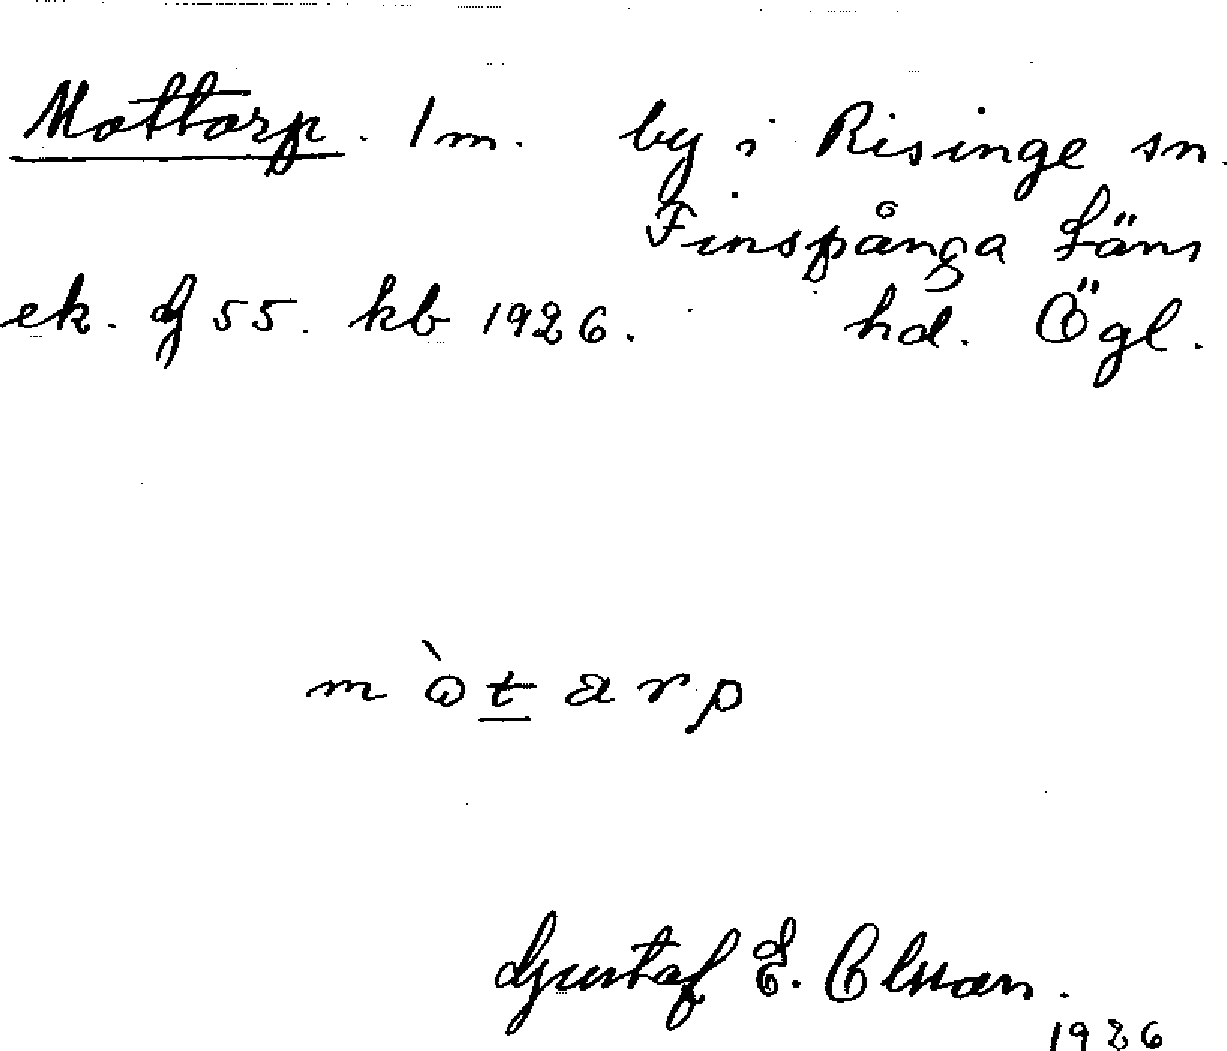 Mottorp. 1 m. by i Risinge sn.
Finspånga Läns
ek. G 55. kb 1926. hd. Ögl.
mòtarp
Gustaf E. Olsson.
1926